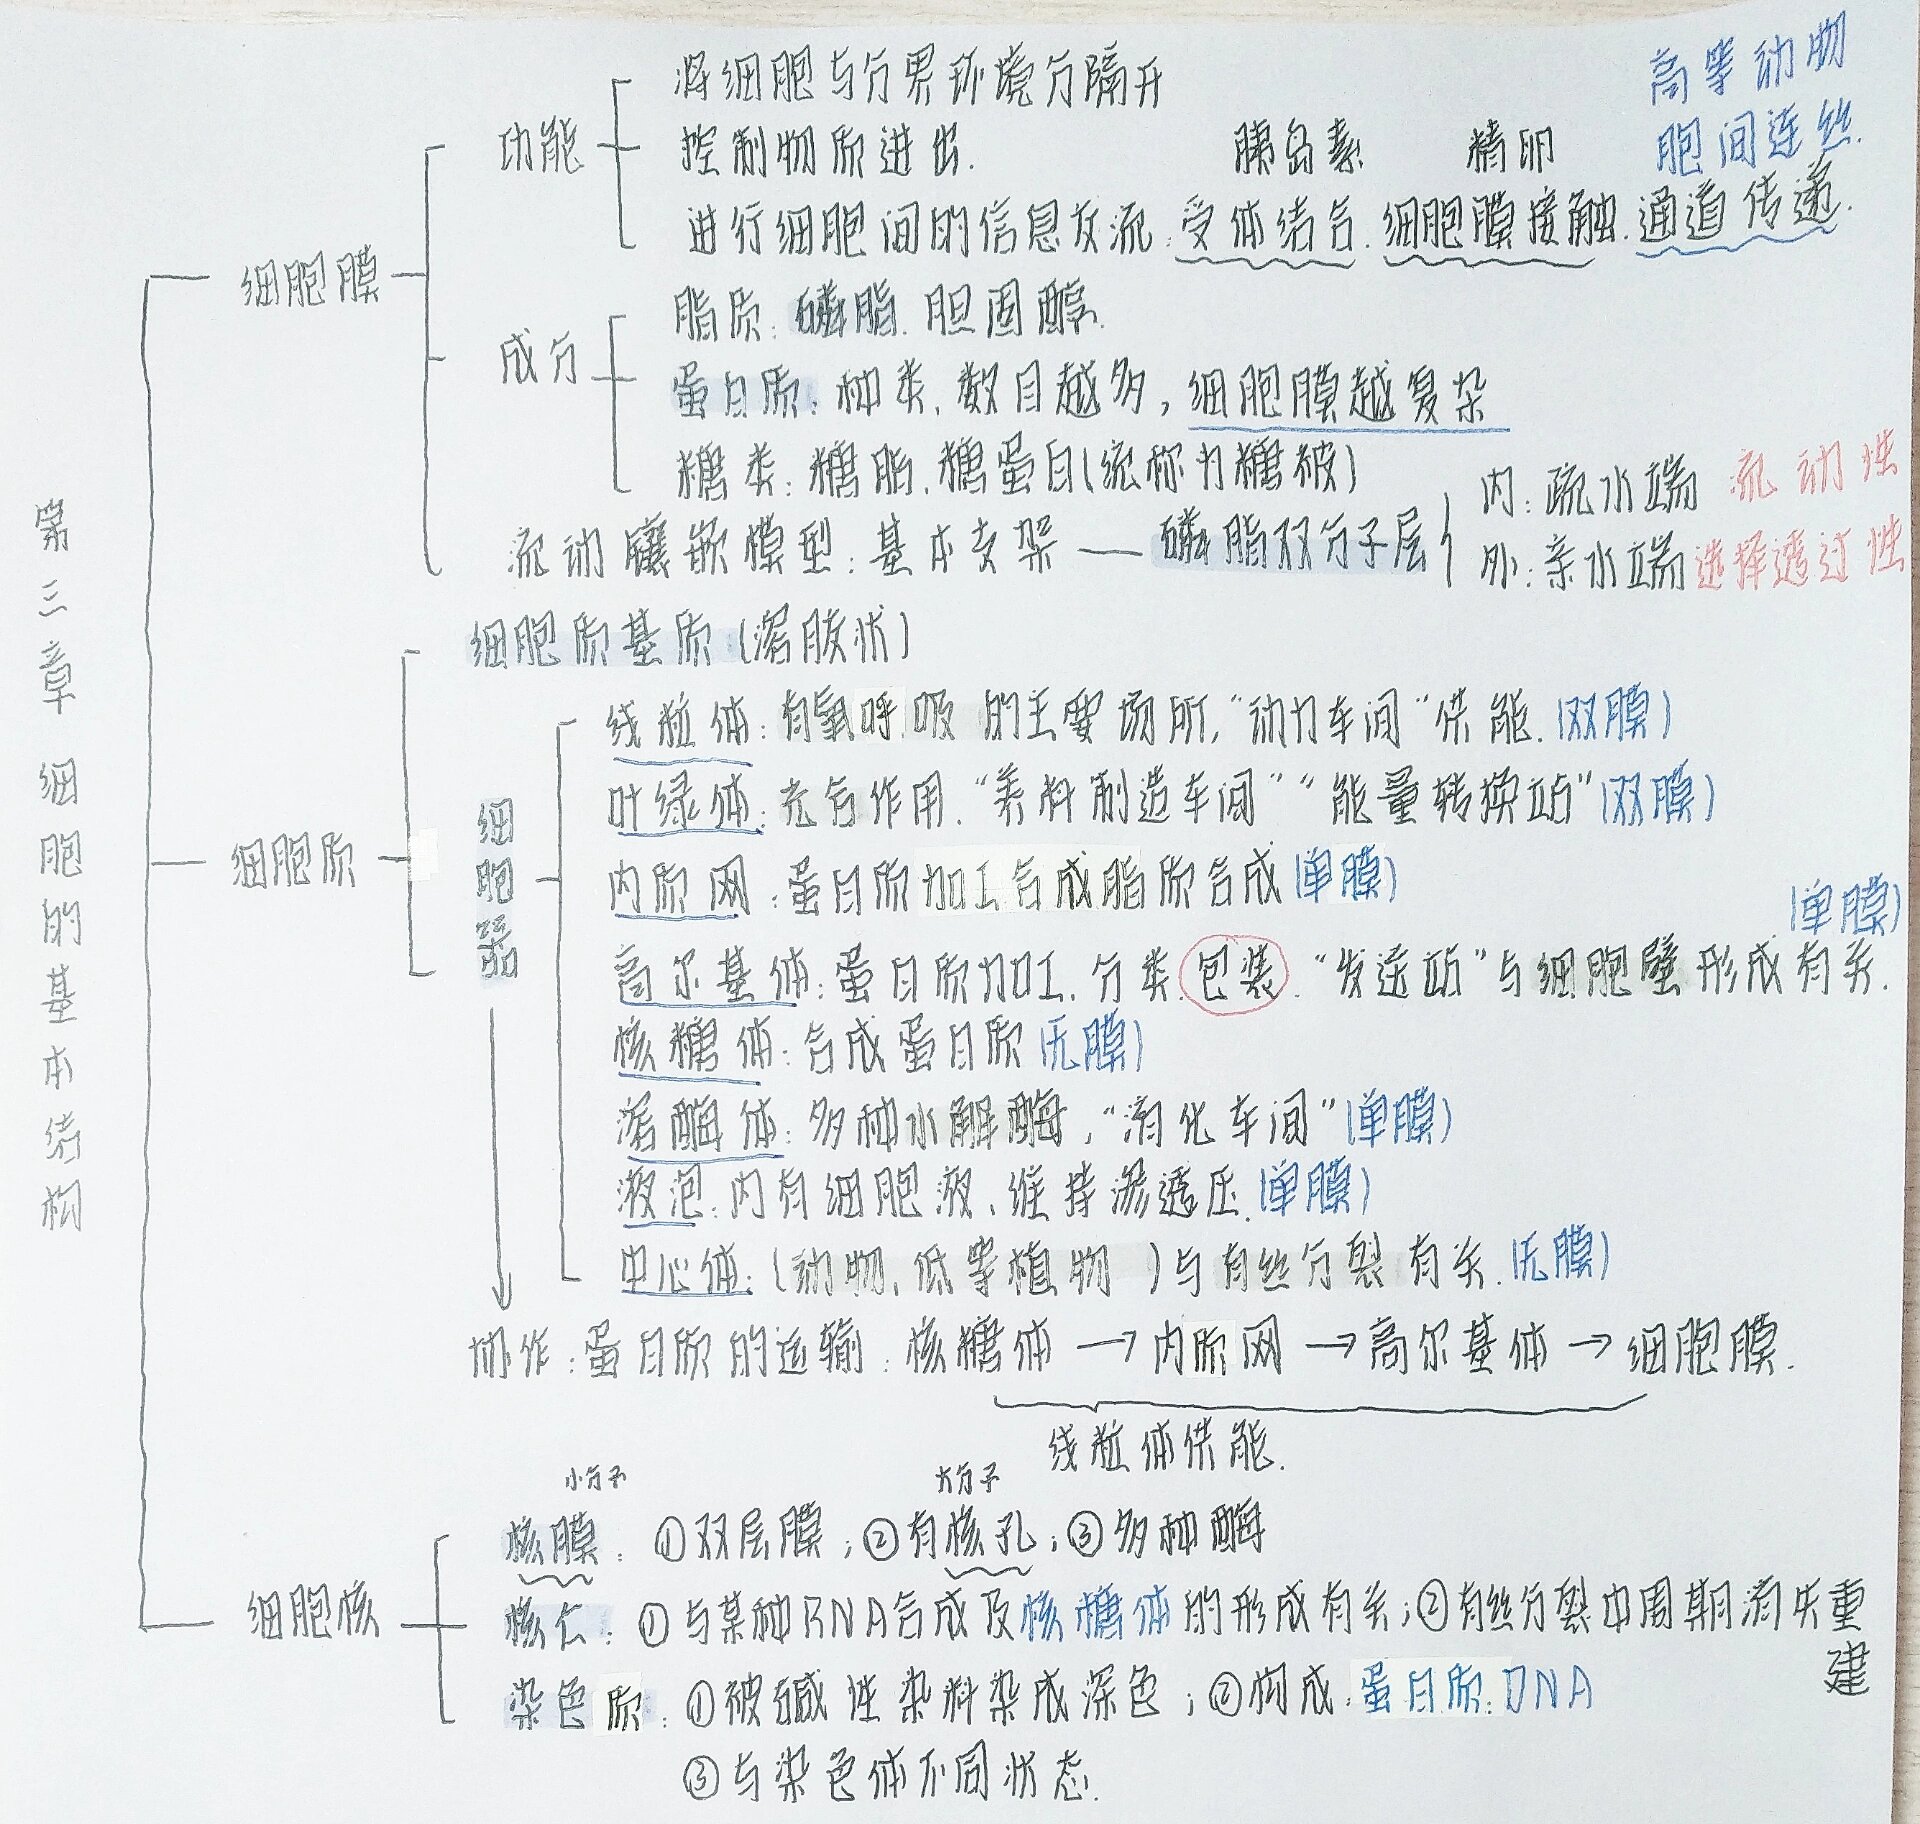 第三章 细胞的基本结构
细胞膜
功能
将细胞与外界环境分隔开
控制物质进出.
进行细胞间的信息交流:受体结合.细胞膜接触.通道传递.
胰岛素 精卵
高等动物
胞间连丝.
成分
脂质:磷脂.胆固醇.
蛋白质:种类.数目越多,细胞膜越复杂
糖类:糖脂.糖蛋白(统称为糖被)
流动镶嵌模型:基本支架——磷脂双分子层
内:疏水端 流动性
外:亲水端 选择透过性
细胞质
细胞质基质:(溶胶状)
细胞器
线粒体:有氧呼吸的主要场所,“动力车间”供能.(双膜)
叶绿体:光合作用.“养料制造车间”“能量转换站”(双膜)
内质网:蛋白质加工合成脂质合成(单膜)
高尔基体:蛋白质加工.分类.包装.“发送站”与细胞壁形成有关.
(单膜)
核糖体:合成蛋白质(无膜)
溶酶体:多种水解酶,“消化车间”(单膜)
液泡:内有细胞液、维持渗透压.(单膜)
中心体:(动物、低等植物)与有丝分裂有关.(无膜)
协作:蛋白质的运输:核糖体→内质网→高尔基体→细胞膜.
线粒体供能.
细胞核
小分子 大分子
核膜:①双层膜;②有核孔;③多种酶
核仁:①与某种RNA合成及核糖体的形成有关;②有丝分裂中周期消失重
建
染色质:①被碱性染料染成深色;②构成:蛋白质.DNA
③与染色体不同状态.